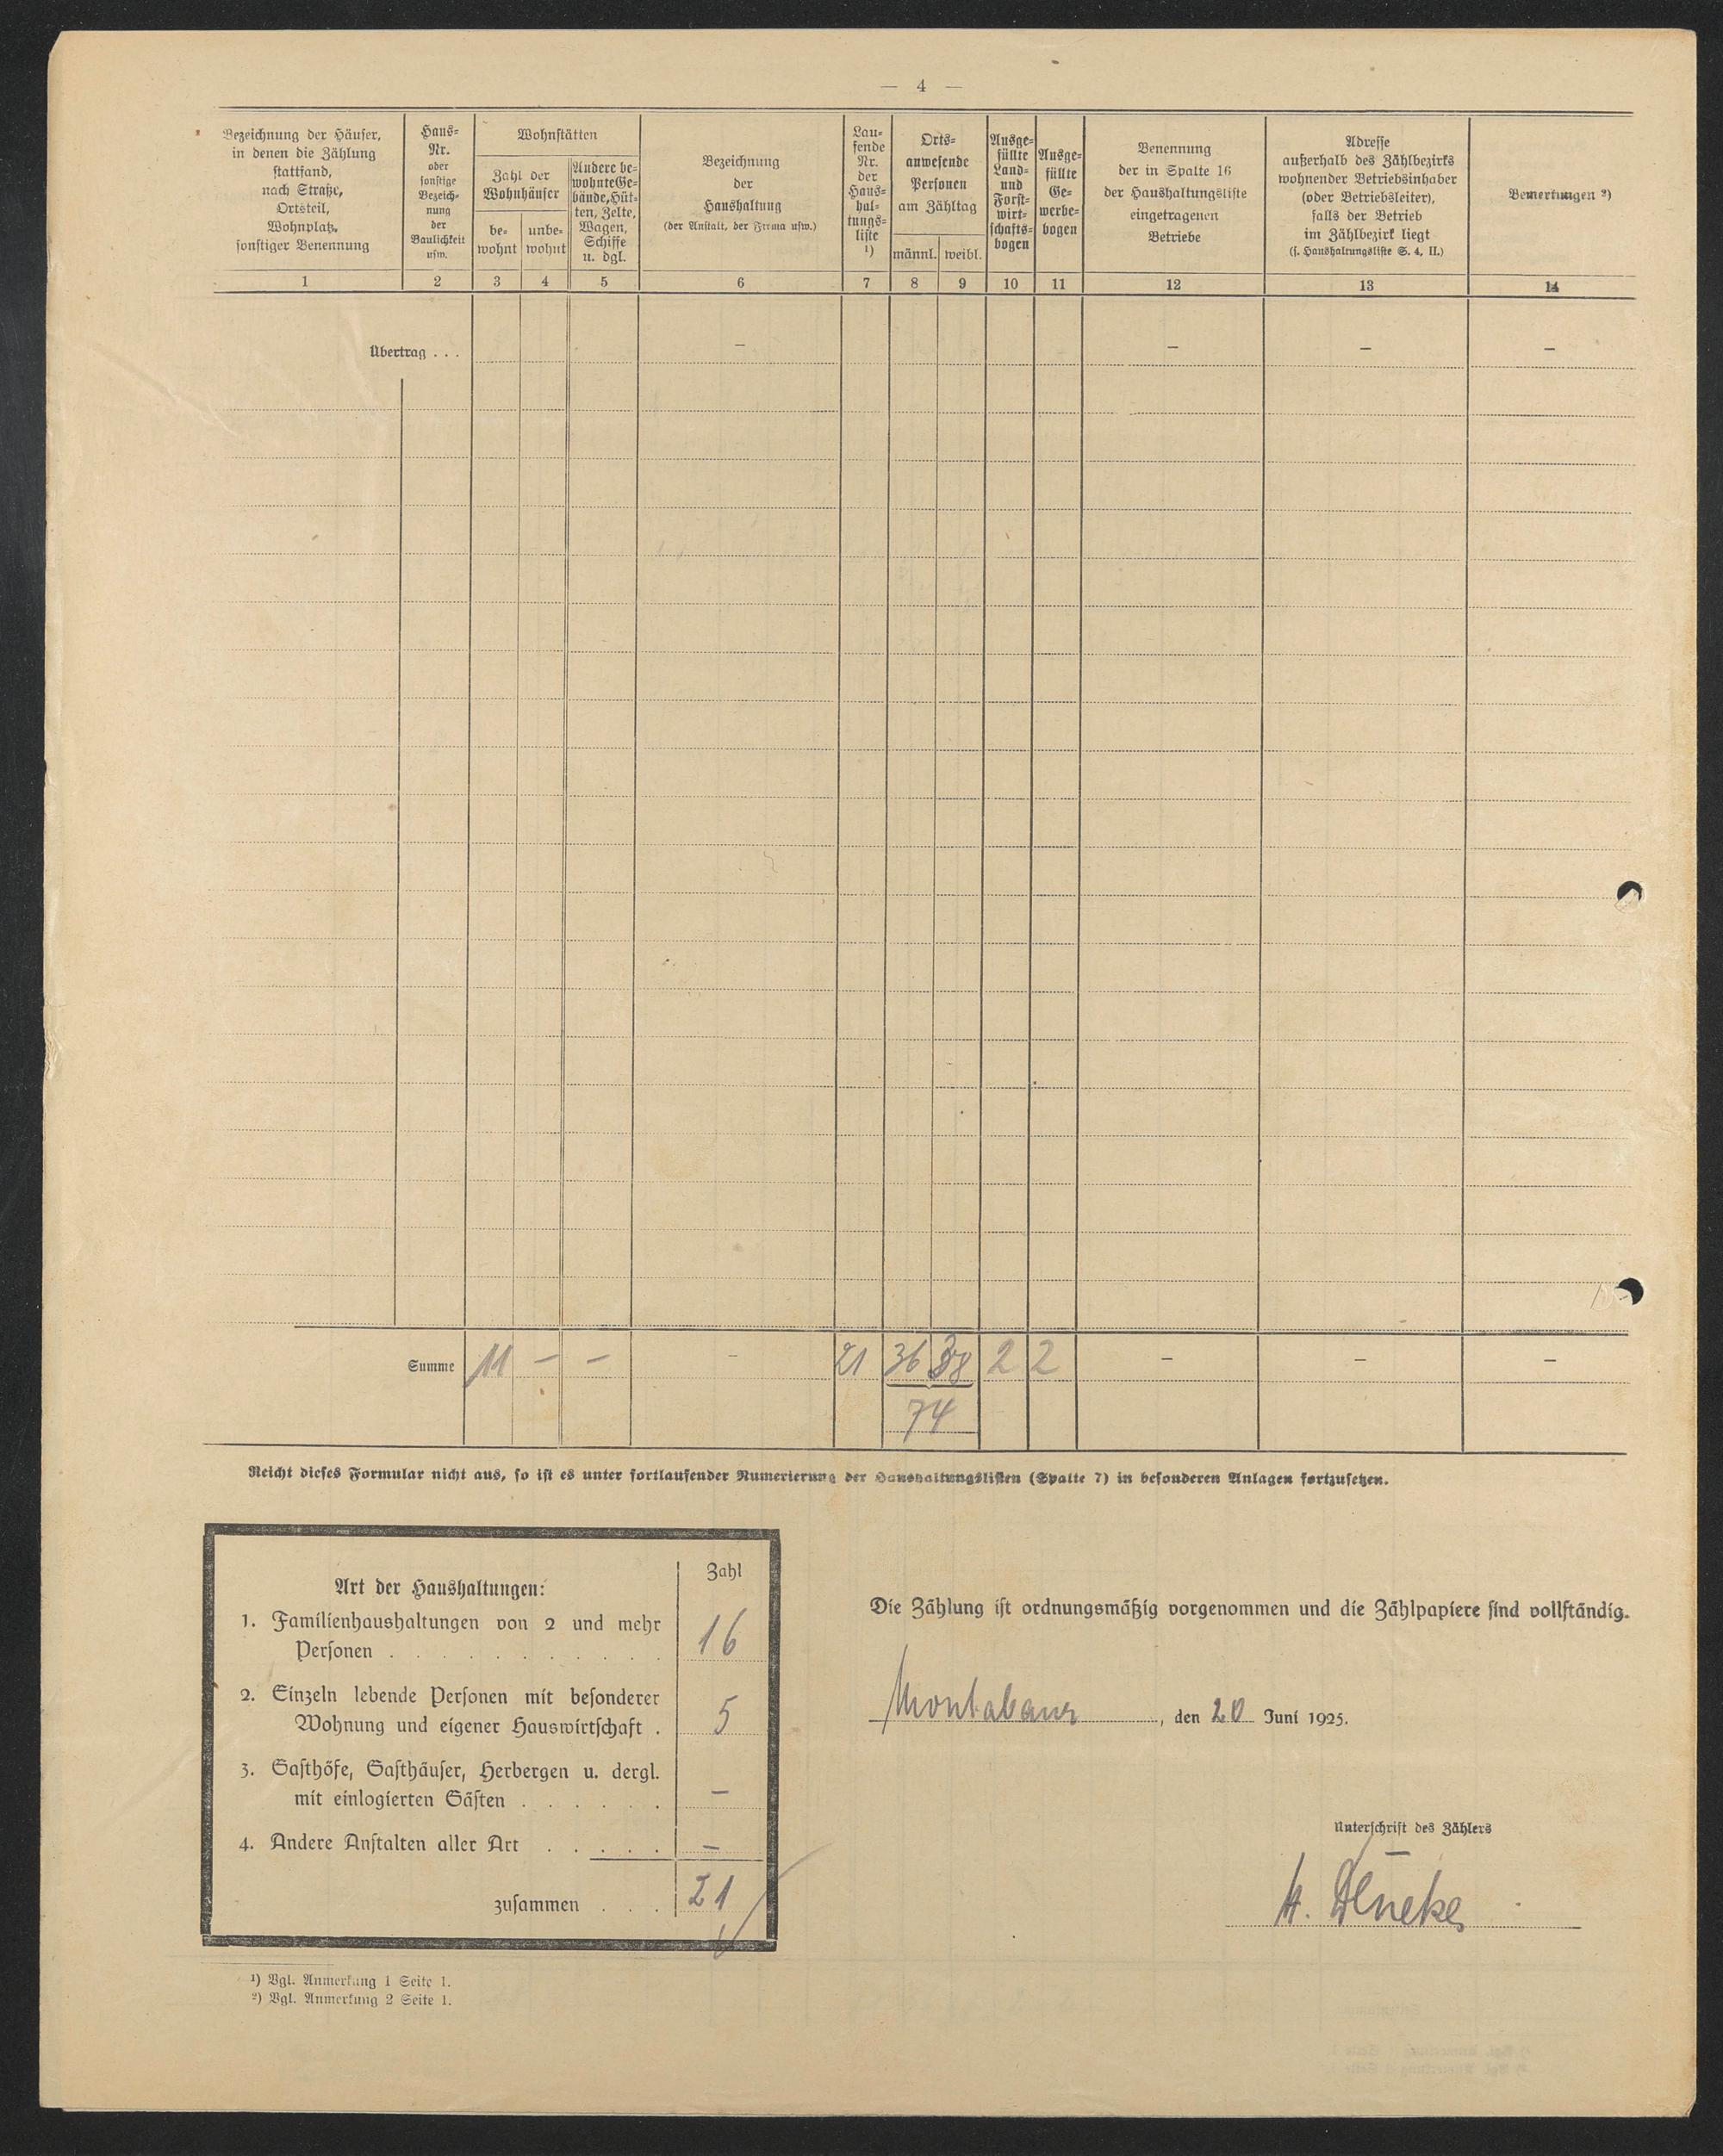 — 4 —
Bezeichnung der Häuser,
in denen die Zählung
stattfand,
nach Straße,
Ortsteil,
Wohnplatz,
sonstiger Benennung
Haus-
Nr.
oder
sonstige
Bezeich-
nung
der
Baulichkeit
usw.
Wohnstätten
Zahl der
Wohnhäuser
be-
wohnt
unbe-
wohnt
Andere be-
wohnte Ge-
bäude, Hüt-
ten, Zelte,
Wagen,
Schiffe
u. dgl.
Bezeichnung
der
Haushaltung
(der Anstalt, der Firma usw.)
Lau-
fende
Nr.
der
Haus-
hal-
tungs-
liste
¹)
Orts-
anwesende
Personen
am Zähltag
männl.
weibl.
Ausge-
füllte
Land-
und
Forst-
wirt-
schafts-
bogen
Ausge-
füllte
Ge-
werbe-
bogen
Benennung
der in Spalte 16
der Haushaltungsliste
eingetragenen
Betriebe
Adresse
außerhalb des Zählbezirks
wohnender Betriebsinhaber
(oder Betriebsleiter),
falls der Betrieb
im Zählbezirk liegt
(s. Haushaltungsliste S. 4, II.)
Bemerkungen ²)
1 2 3 4 5 6 7 8 9 10 11 12 13 14
Übertrag . . . – – – –
Summe 11 – – – 21 36 38 2 2 – – –
74
Reicht dieses Formular nicht aus, so ist es unter fortlaufender Numerierung der Haushaltungslisten (Spalte 7) in besonderen Anlagen fortzusetzen.
Zahl
Art der Haushaltungen:
1. Familienhaushaltungen von 2 und mehr
Personen . . . . . . . . . . . 16
2. Einzeln lebende Personen mit besonderer
Wohnung und eigener Hauswirtschaft . 5
3. Gasthöfe, Gasthäuser, Herbergen u. dergl.
mit einlogierten Gästen . . . . . . –
4. Andere Anstalten aller Art . . . . . –
zusammen . . . 21
Die Zählung ist ordnungsmäßig vorgenommen und die Zählpapiere sind vollständig.
Montabaur, den 20 Juni 1925.
Unterschrift des Zählers
¹) Vgl. Anmerkung 1 Seite 1.
²) Vgl. Anmerkung 2 Seite 1.